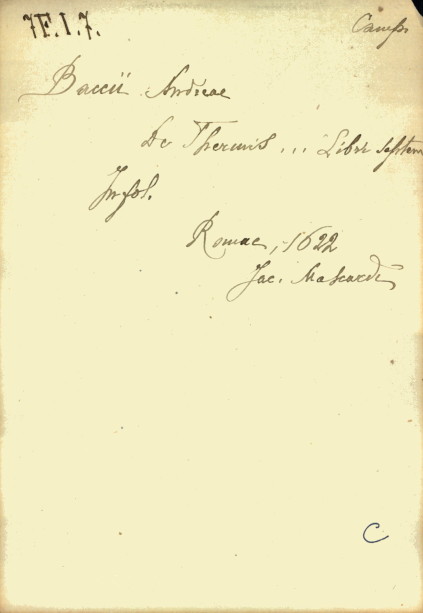 77.I.7.
Camp.
Baccii Andreae
De Thermis ... Libri septem
In fol.
Romae, 1622
Jac. Mascardi
C